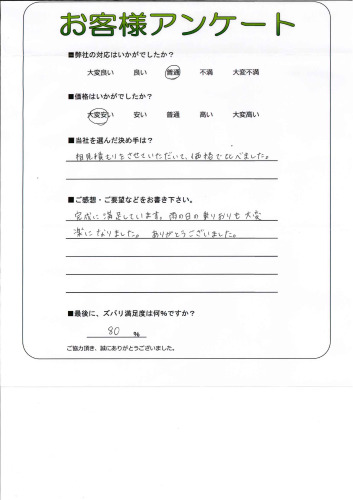 お客様アンケート
■弊社の対応はいかがでしたか？
大変良い 良い 普通 不満 大変不満
■価格はいかがでしたか？
大変安い 安い 普通 高い 大変高い
■当社を選んだ決め手は？
相見積もりをさせていただいて、価格で比べました。
■ご感想・ご要望などをお書き下さい。
完成に満足しています。雨の日の乗りおりも大変
楽になりました。 ありがとうございました。
■最後に、ズバリ満足度は何%ですか？
80 %
ご協力頂き、誠にありがとうございました。